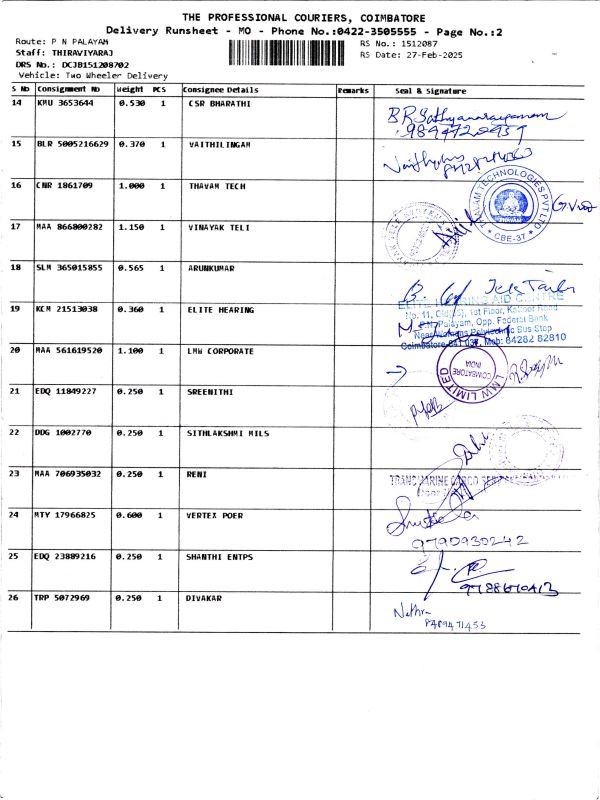 THE PROFESSIONAL COURIERS, COIMBATORE
Delivery Runsheet - MO - Phone No.:0422-3505555 - Page No.:2
Route: P N PALAYAM
RS No.: 1512087
Staff: THIRAVIYARAJ
RS Date: 27-Feb-2025
DRS No.: DCJB151208702
Vehicle: Two Wheeler Delivery
S No Consignment No Weight PCS Consignee Details Remarks Seal & Signature
14 KMU 3653644 0.530 1 CSR BHARATHI
15 BLR 5005216629 0.370 1 VAITHILINGAM
16 CNR 1861709 1.000 1 THAVAM TECH
THAVAM TECHNOLOGIES PVT LTD
* CBE-37 *
17 MAA 866800282 1.150 1 VINAYAK TELI
18 SLM 365015855 0.565 1 ARUNKUMAR
19 KCM 21513038 0.360 1 ELITE HEARING
ELITE HEARING AID CENTRE
1st Floor,
P.N. Palayam, Opp. Federal Bank
Near Womens Polytechnic Bus Stop
Coimbatore-641 037. Mob: 84282 82810
20 MAA 561619520 1.100 1 LMW CORPORATE
LMW LIMITED
COIMBATORE
INDIA
21 EDQ 11849227 0.250 1 SREENITHI
22 DDG 1002770 0.250 1 SITHLAKSHMI MILS
23 MAA 706935032 0.250 1 RENI
24 MTY 17966825 0.600 1 VERTEX POER
9790930242
25 EDQ 23889216 0.250 1 SHANTHI ENTPS
26 TRP 5072969 0.250 1 DIVAKAR
Nethra